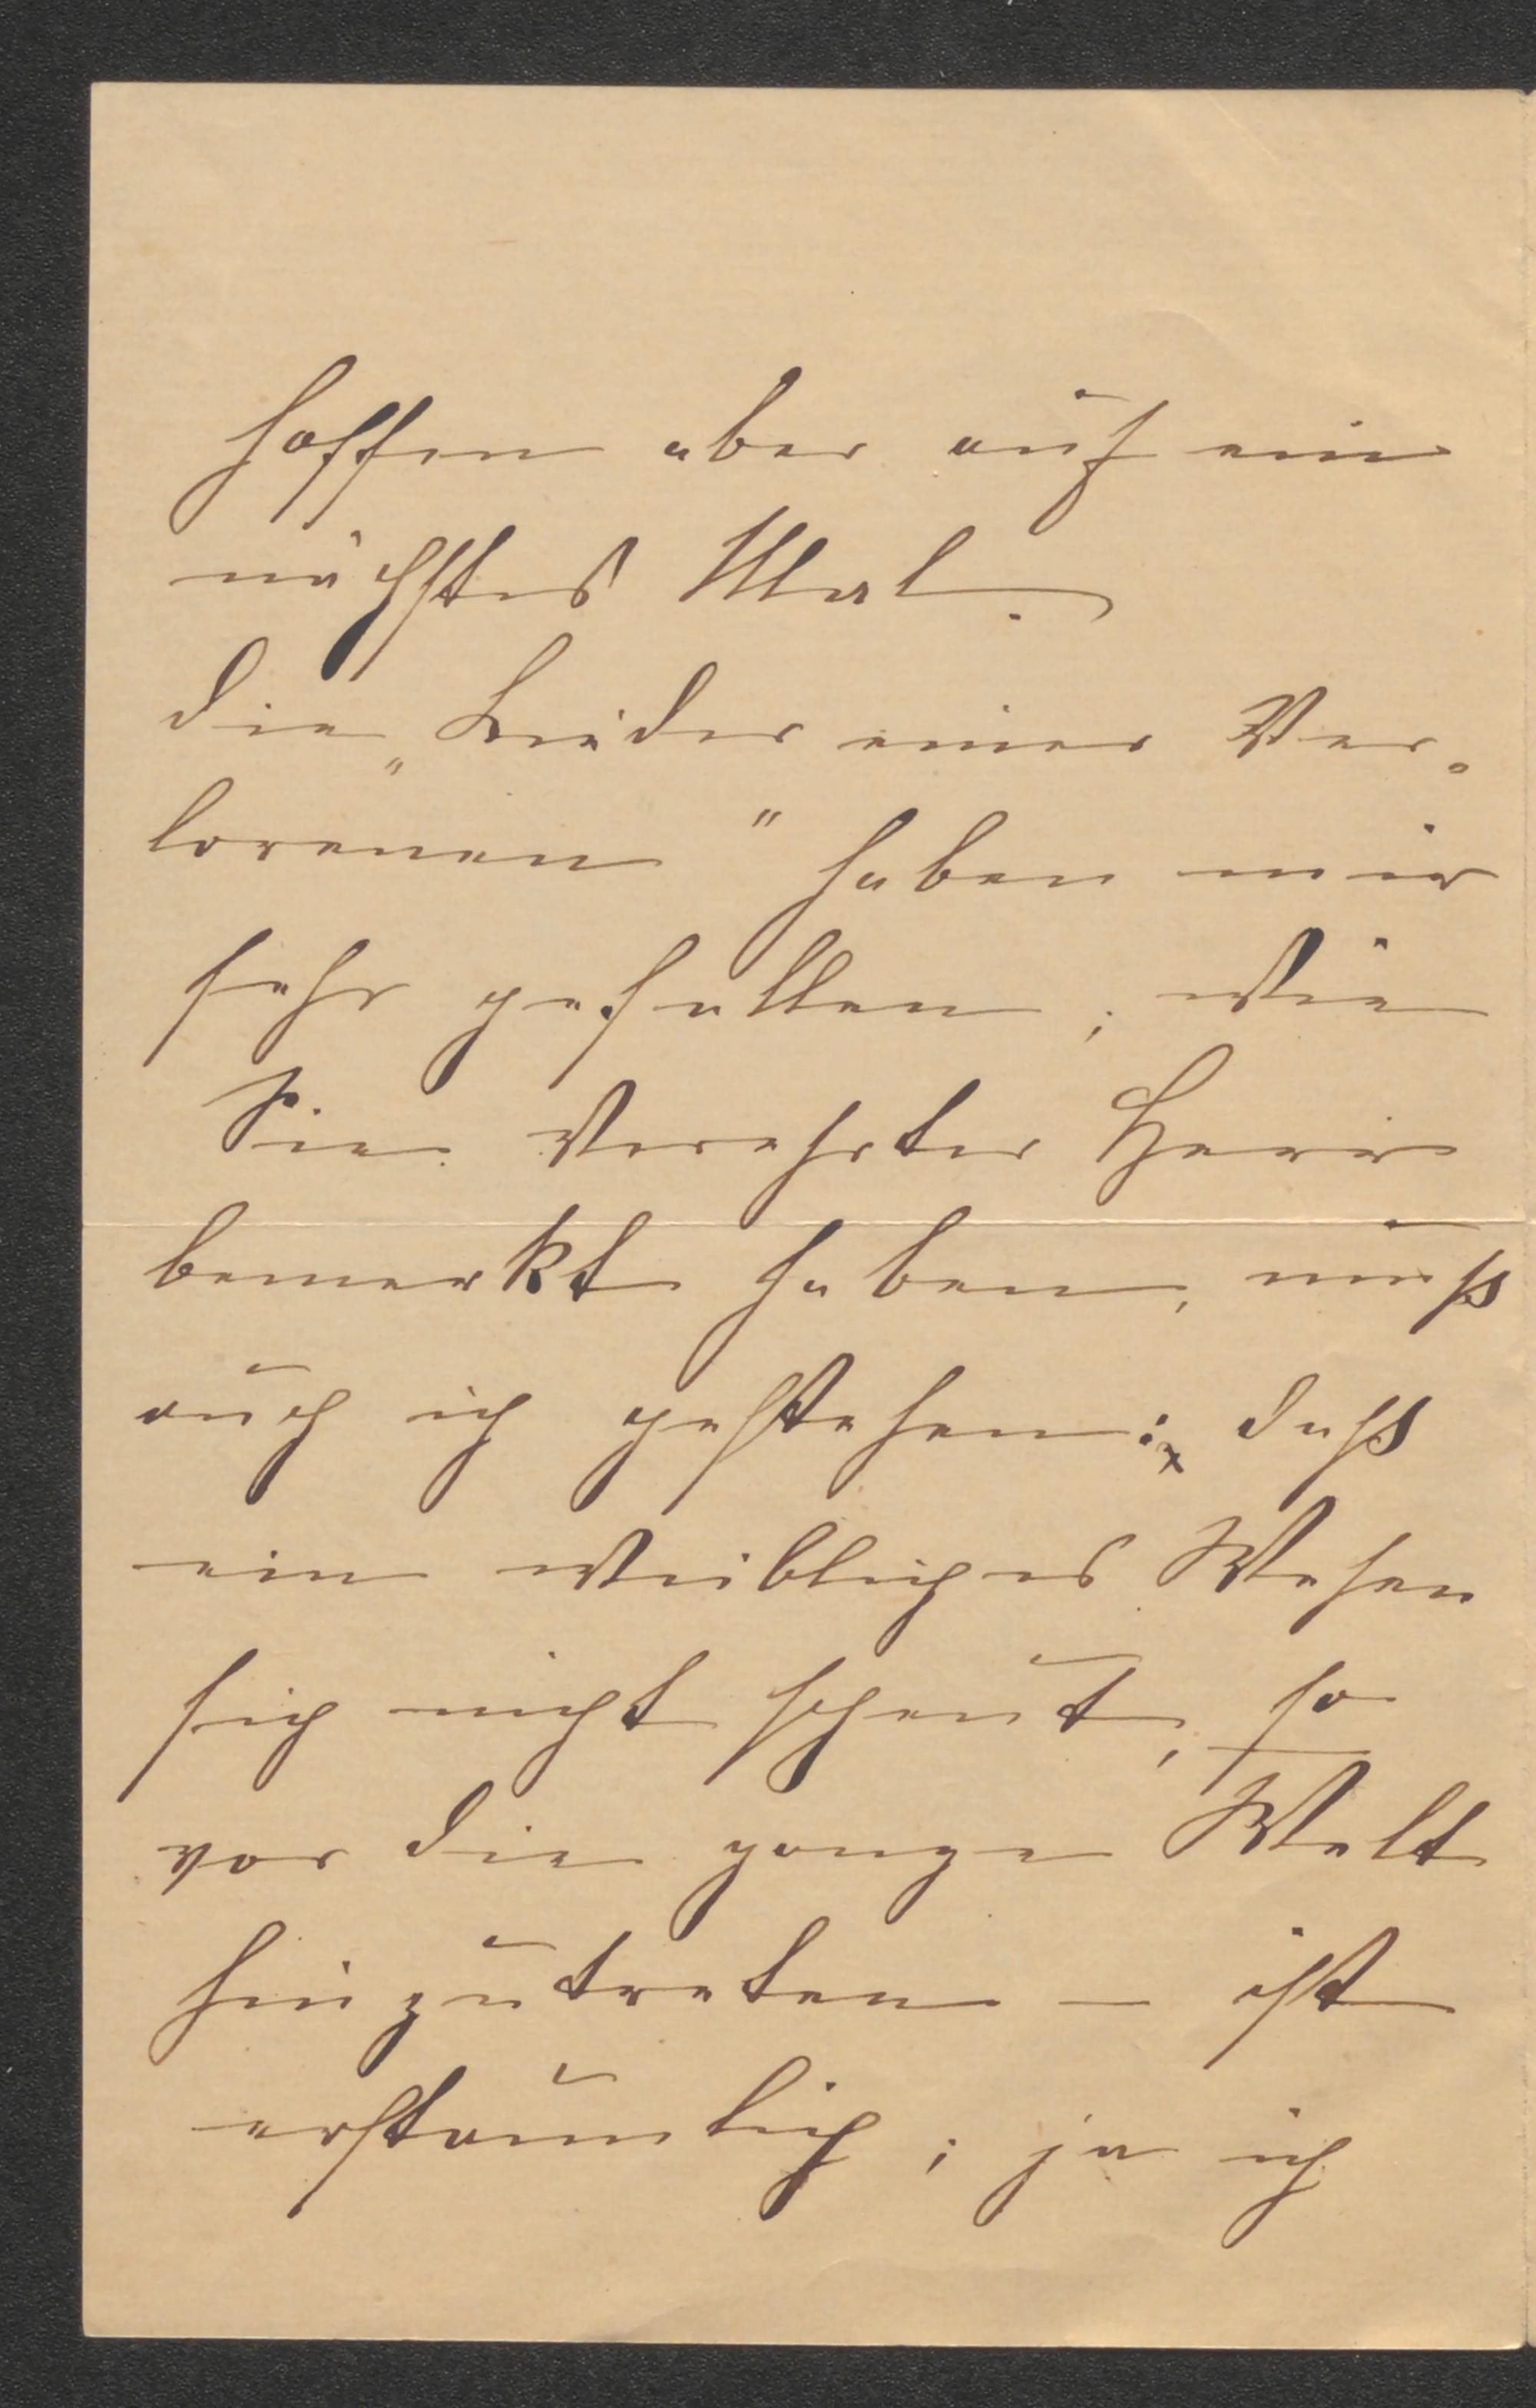 hoffen aber auf ein
nächstes Mal.
die „Lieder einer Ver-
lorenen" haben mir
sehr gefallen; wie
Sie verehrter Herr
bemerkt haben, muß
auch ich gestehen: daß
ein weibliches Wesen
sich nicht scheut, so
vor die ganze Welt
hinzutreten – ist
erstaunlich; ja ich